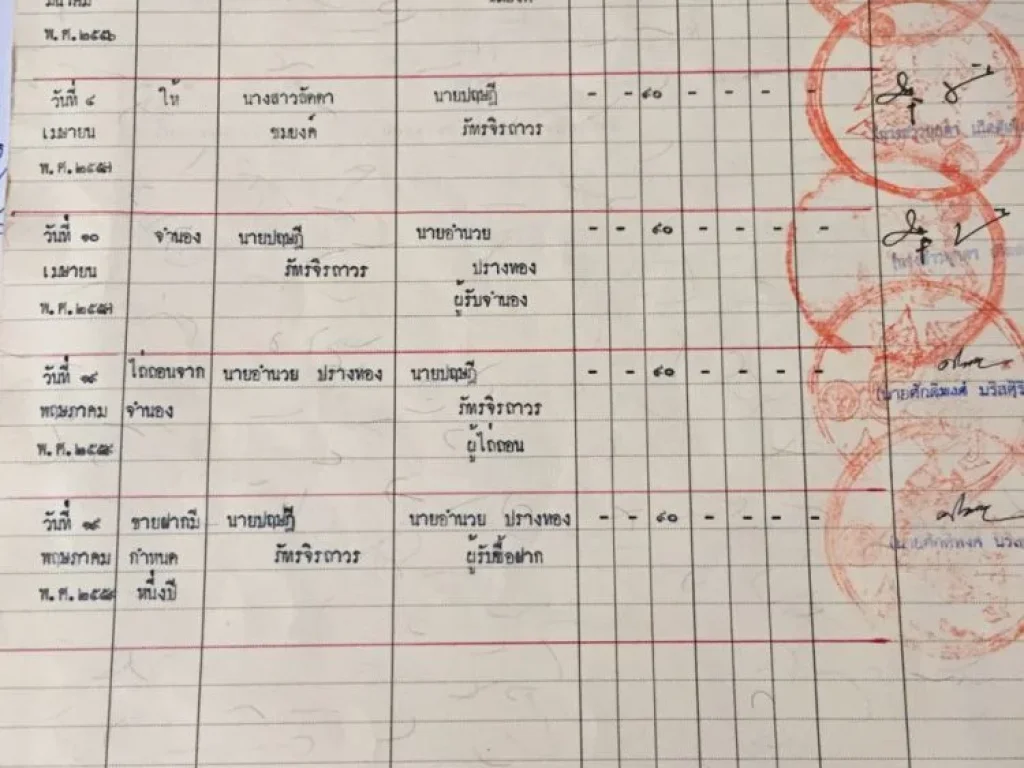 พ.ศ.๒๕๕๖
วันที่ ๔ ให้ นางสาวลัดดา นายปฤษฎี - - ๙๐ - - - -
เมษายน ชมยงค์ ภัทรจิรถาวร
พ.ศ.๒๕๕๗
วันที่ ๑๐ จำนอง นายปฤษฎี นายอำนวย - - ๙๐ - - - -
เมษายน ภัทรจิรถาวร ปรางทอง
พ.ศ.๒๕๕๗ ผู้รับจำนอง
วันที่ ๑๙ ไถ่ถอนจาก นายอำนวย ปรางทอง นายปฤษฎี - - ๙๐ - - - -
พฤษภาคม จำนอง ภัทรจิรถาวร
พ.ศ.๒๕๕๙ ผู้ไถ่ถอน
วันที่ ๑๙ ขายฝากมี นายปฤษฎี นายอำนวย ปรางทอง - - ๙๐ - - - -
พฤษภาคม กำหนด ภัทรจิรถาวร ผู้รับซื้อฝาก
พ.ศ.๒๕๕๙ หนึ่งปี